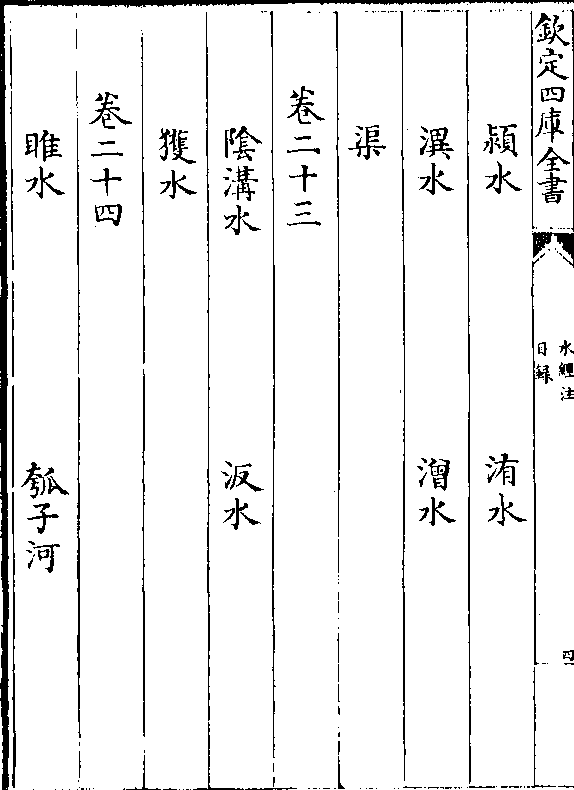 欽定四庫全書
水經注
目録
四
潁水 洧水
潩水 潧水
渠
卷二十三
陰溝水 汳水
獲水
卷二十四
睢水 瓠子河